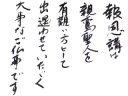 報恩講は
親鸞聖人を
有難い方として
出遇わせていただく
大事なご仏事です